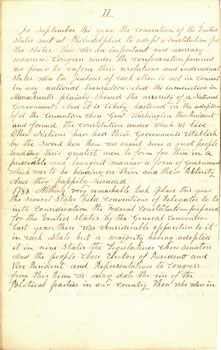 77
In September this year the convention of the United
States met at Philadelphia to adopt a constitution for
the States This was an important and necessary
measure. Congress under the confederation possessed
no power to enforce their resolutions and individual
States were too jealous of each other to act in concert
in any national character but the insurrection in
Massachusetts people showed the necessity of a National
Government And so it likely hastened on the adoption
of it the Convention Geo. Washington President
and formed the constitution under which we live
Other Nations have had their Governments establish
by the sword here there was about three a great people
sending their greatest men to form for them in a
peaceable and tranquil manner a form of Government
which was to be binding on them and their Posterity
And they happily succeeded
1788 Nothing very remarkable took place this year
the several States held conventions of delegates to take
into consideration the Federal Constitution proposed
for the United States by the General Convention
last year there was considerable opposition to it
in each State but a majority having adopted
it in nine States the Legislatures chose Senators
and the people chose Electors of President and
Vice President and Representatives to Congress
from this time we may date the rise of the
Political parties in our country Those who were in